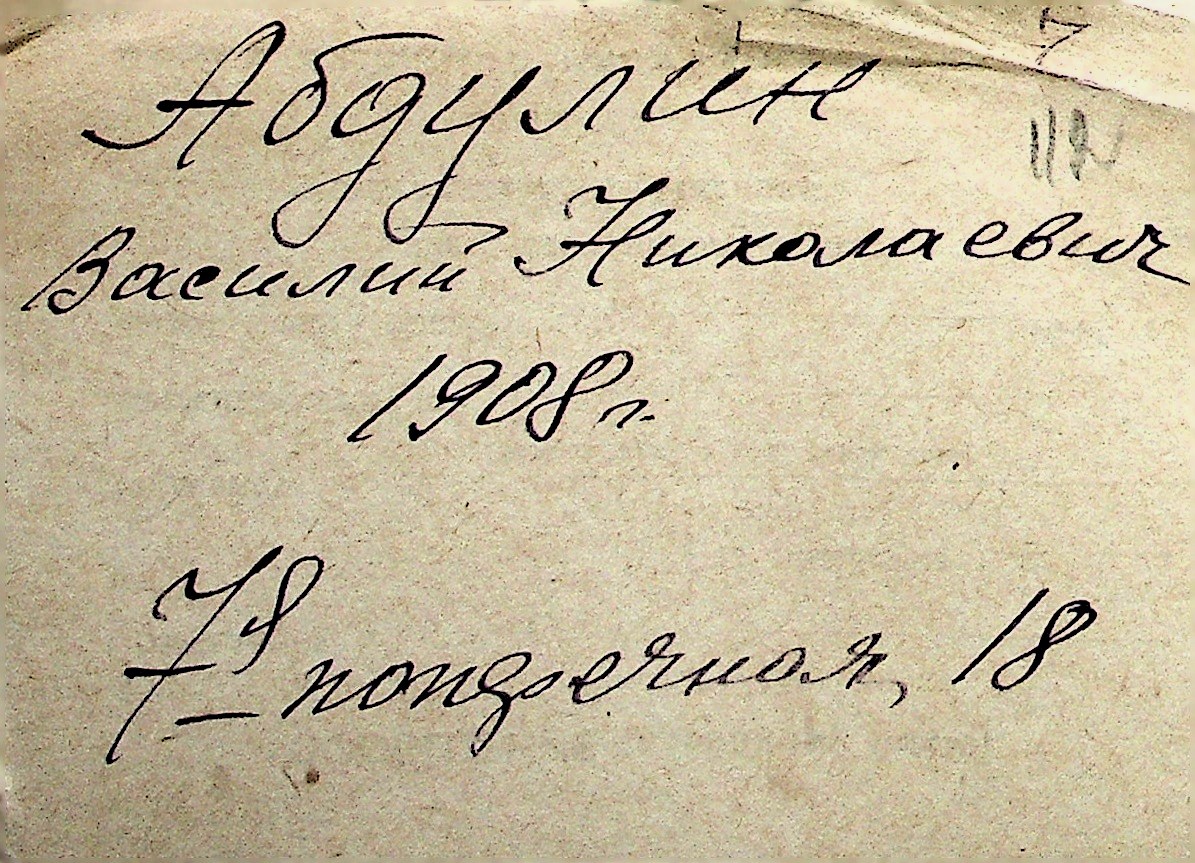 Абдулин
Василий Николаевич
1908 г.
7я поперечная, 18